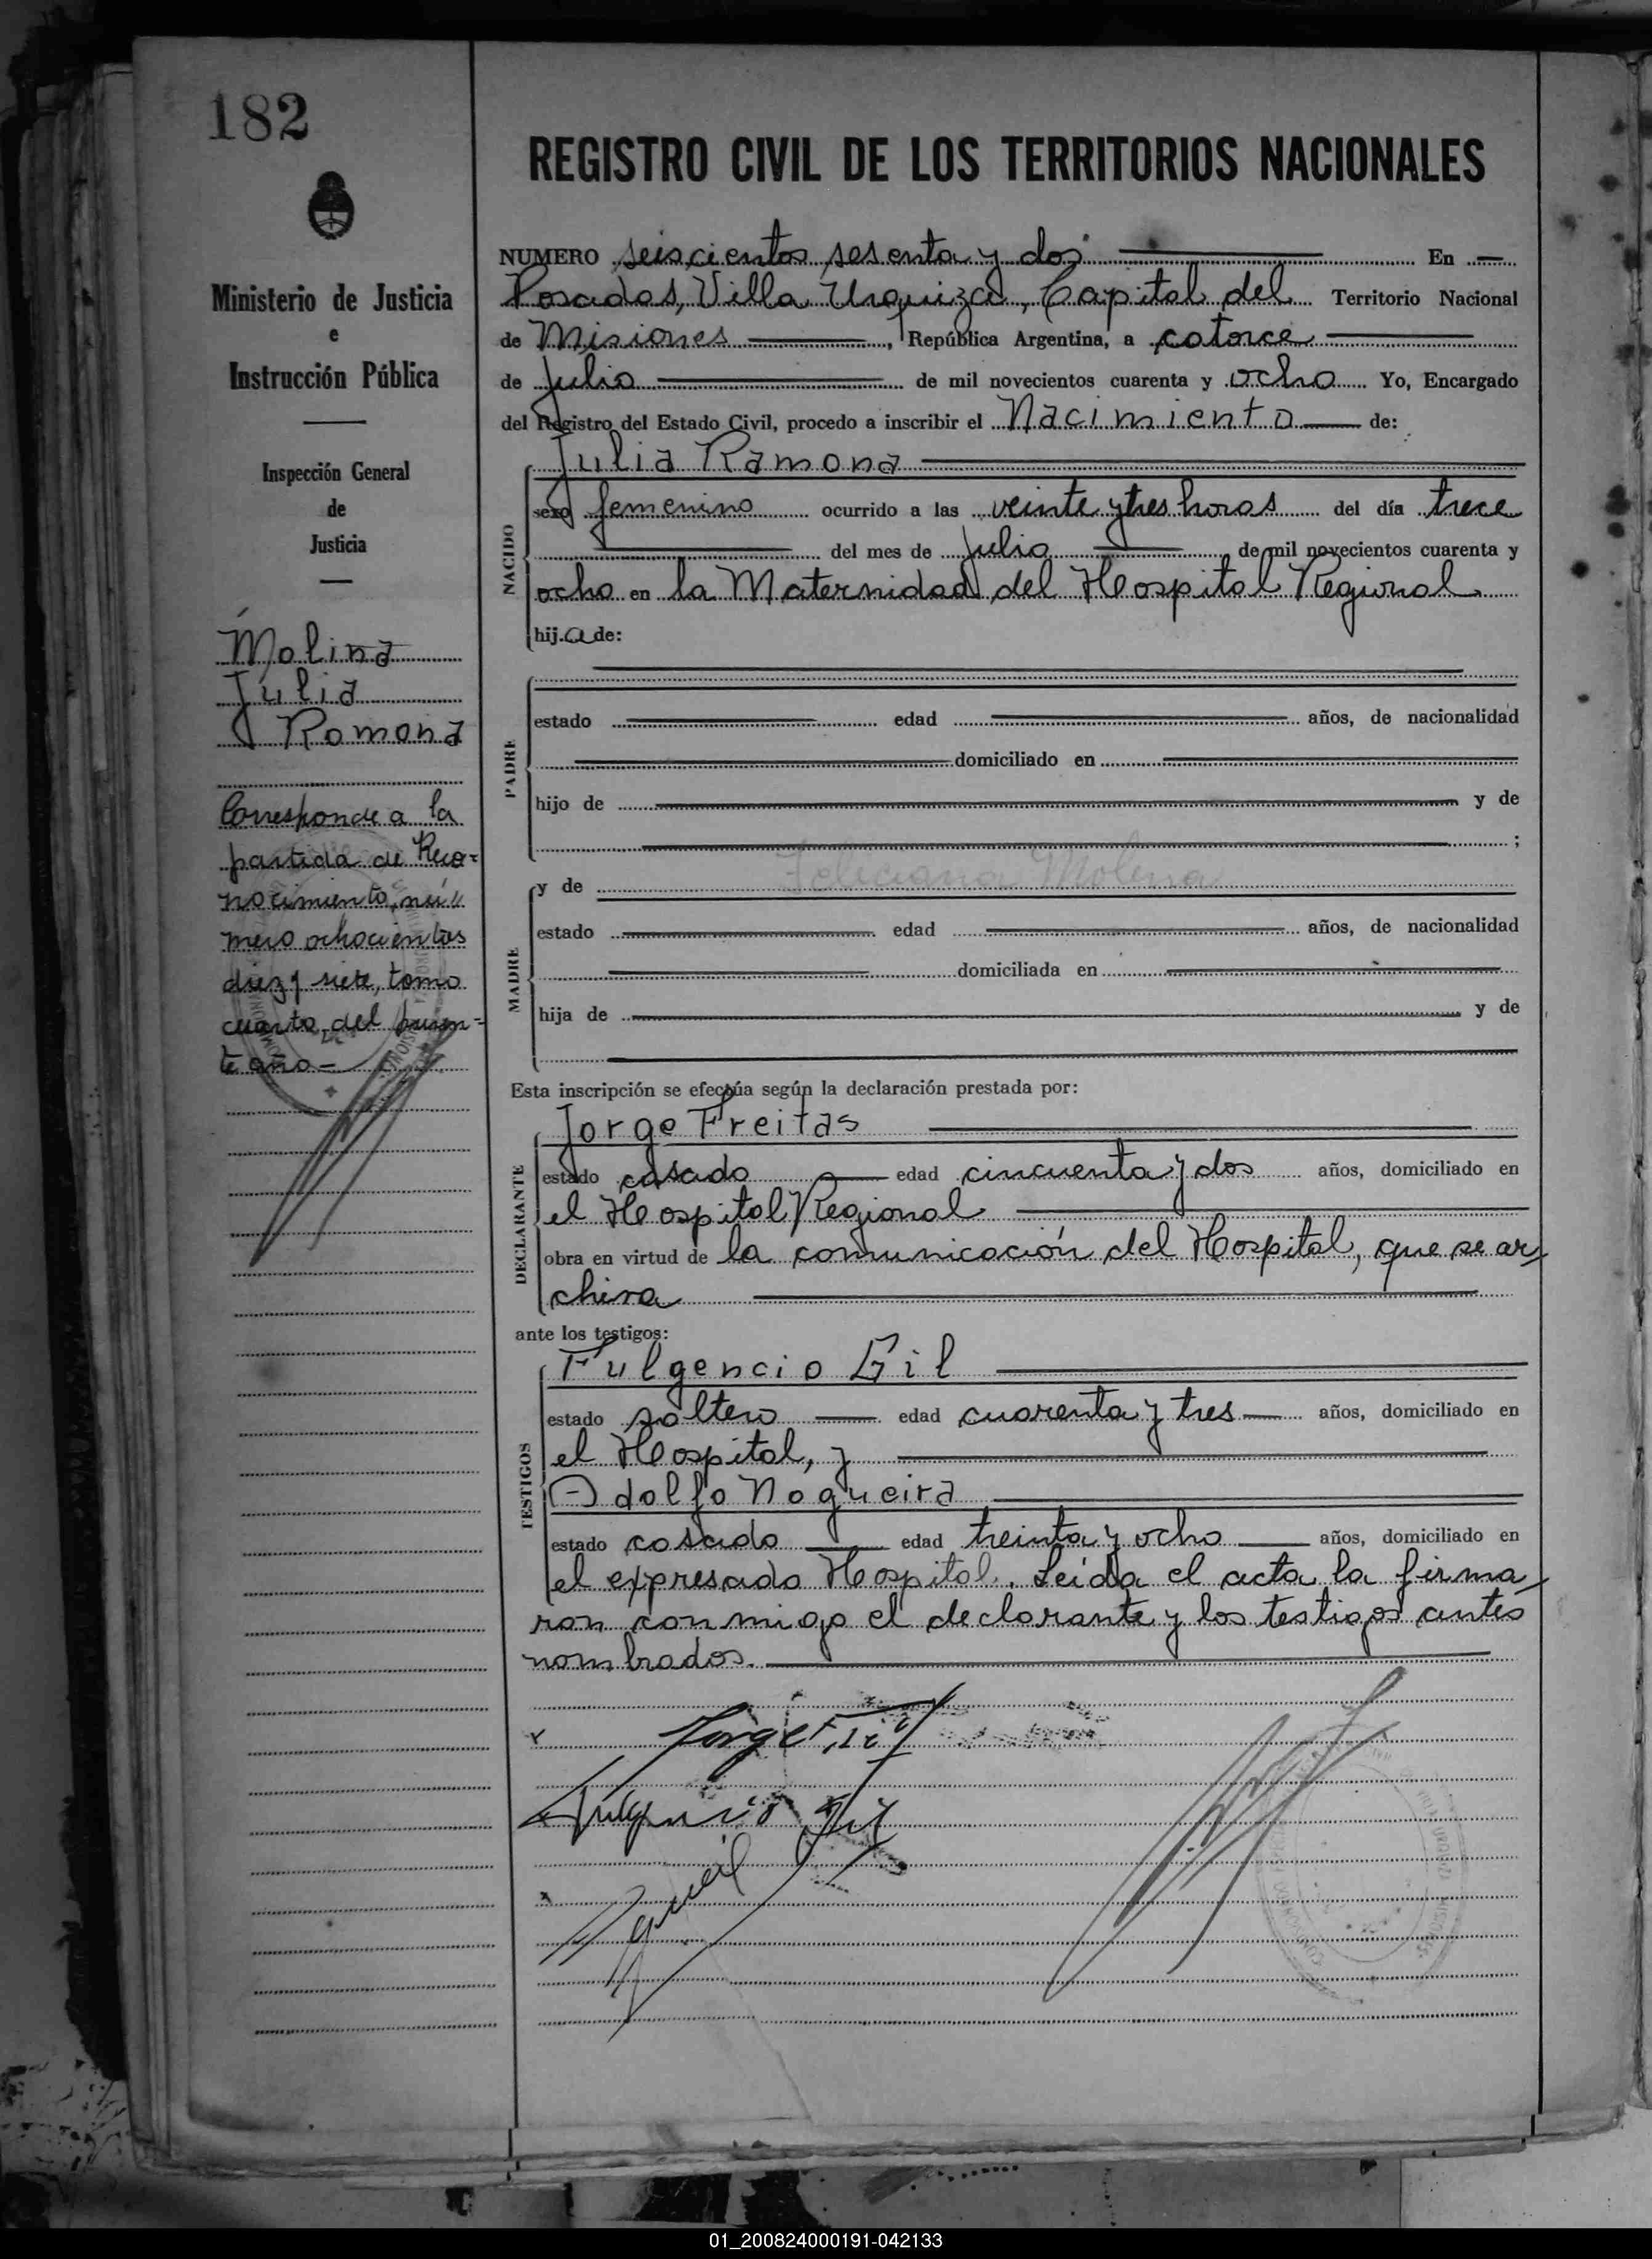 182
Ministerio de Justicia
e
Instrucción Pública
Inspección General
de
Justicia
Molina
Julia
Ramona
Corresponde a la
partida de Reco=
nocimiento, nú"
mero ochocientos
diez y siete, tomo
cuarto, del presen=
te año=
REGISTRO CIVIL DE LOS TERRITORIOS NACIONALES
NUMERO seiscientos sesenta y dos En
Posadas, Villa Urquiza, Capital del Territorio Nacional
de Misiones, República Argentina, a catorce
de julio de mil novecientos cuarenta y ocho Yo, Encargado
del Registro del Estado Civil, procedo a inscribir el Nacimiento de:
NACIDO
Julia Ramona
sexo femenino ocurrido a las veinte y tres horas del día trece
del mes de julio de mil novecientos cuarenta y
ocho en la Maternidad del Hospital Regional
hija de:
PADRE
estado edad años, de nacionalidad
domiciliado en
hijo de y de
;
MADRE
y de Feliciana Molina
estado edad años, de nacionalidad
domiciliada en
hija de y de
Esta inscripción se efectúa según la declaración prestada por:
DECLARANTE
Jorge Freitas
estado casado edad cincuenta y dos años, domiciliado en
el Hospital Regional
obra en virtud de la comunicación del Hospital, que se ar
chiva
ante los testigos:
TESTIGOS
Fulgencio Gil
estado soltero edad cuarenta y tres años, domiciliado en
el Hospital, y
Adolfo Nogueira
estado casado edad treinta y ocho años, domiciliado en
el expresado Hospital. Leída el acta la firma
ron conmigo el declarante y los testigos antes
nombrados.
Jorge
Fulgencio Gil
01_200824000191-042133